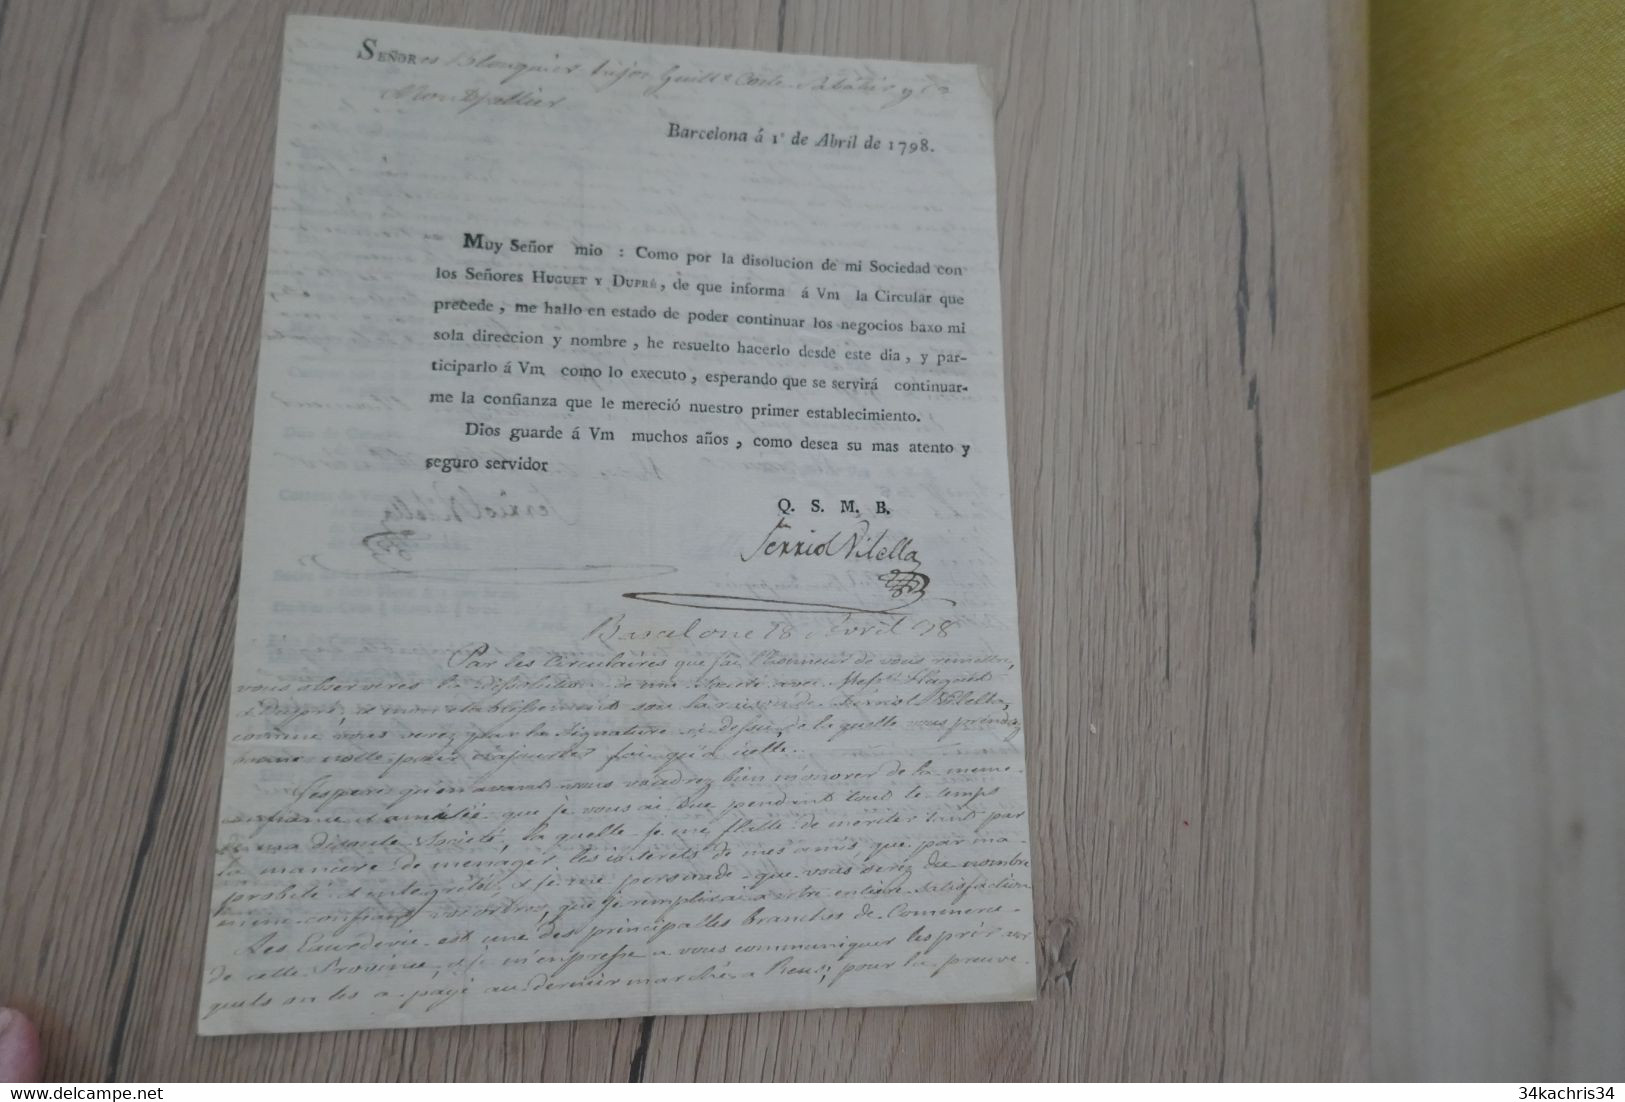 SEÑORes Blouquier hijos Guille Coste Sabatier y Ca
Montpellier
Barcelona á 1º de Abril de 1798.
Muy Señor mio : Como por la disolucion de mi Sociedad con
los Señores HUGUET Y DUPRÉ, de que informa á Vm la Circular que
precede, me hallo en estado de poder continuar los negocios baxo mi
sola direccion y nombre, he resuelto hacerlo desde este dia, y par-
ticiparlo á Vm como lo executo, esperando que se servirá continuar-
me la confianza que le mereció nuestro primer establecimiento.
Dios guarde á Vm muchos años, como desea su mas atento y
seguro servidor
Q. S. M. B.
Ferriol Vilella
Barcelone 28 Avril 98
Par les Circulaires que j'ai l'honneur de vous remettre,
vous observeres la dissolution de ma Societé avec Messrs Huguet
& Dupré, & mon etablissement sous la raison de Ferriol Vilella,
comme vous verez par la signature ci dessus, de la quelle vous prendrez
bonne notte pour n'ajouter foi qu'à icelle.
J'espere qu'en avant vous voudrez bien m'onorer de la meme
confiance & amitiée que je vous ai due pendant tout le temps
de ma disoute Societé, la quelle je me flatte de meriter tant par
la maniere de menager les interets de mes amis que par ma
probité & integrité, & je me persuade que vous serez du nombre
que je remplirai a votre entiere satisfaction
Les Eaux de vie est une des principalles branches de Commerce
de cette Province, & je m'empresse a vous communiquer les prix aux
quels on les a payé au dernier marché a Reus; pour la preuve
34kachris34